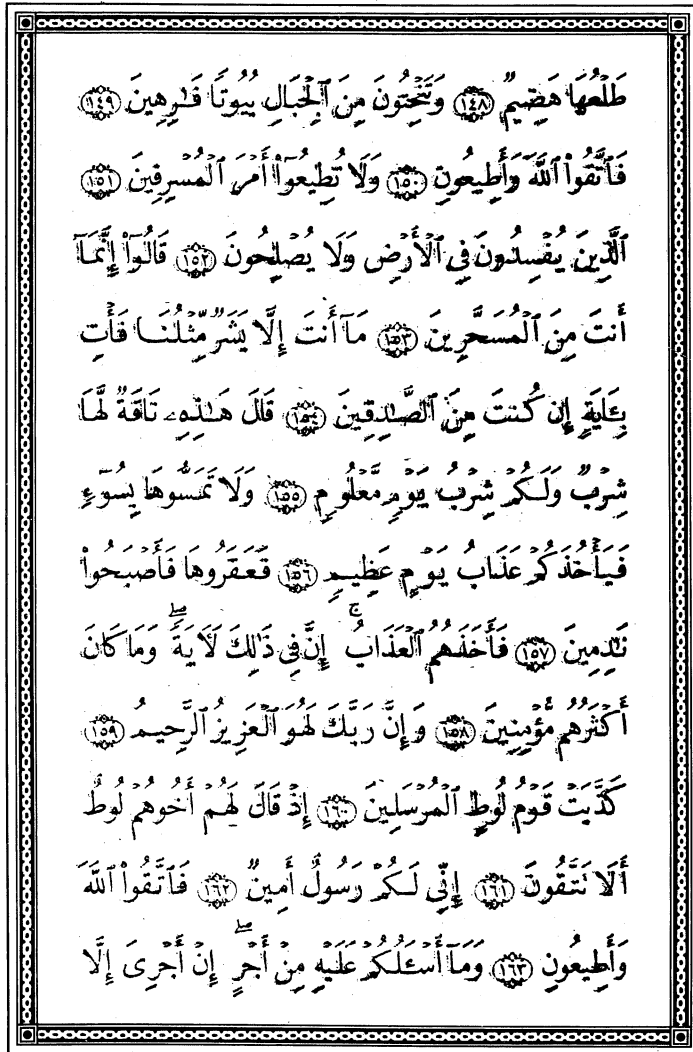 طَلْعُهَا هَضِيمٌ ١٤٨ وَتَنْحِتُونَ مِنَ ٱلْجِبَالِ بُيُوتًا فَٰرِهِينَ ١٤٩
فَٱتَّقُوا۟ ٱللَّهَ وَأَطِيعُونِ ١٥٠ وَلَا تُطِيعُوٓا۟ أَمْرَ ٱلْمُسْرِفِينَ ١٥١
ٱلَّذِينَ يُفْسِدُونَ فِي ٱلْأَرْضِ وَلَا يُصْلِحُونَ ١٥٢ قَالُوٓا۟ إِنَّمَآ
أَنتَ مِنَ ٱلْمُسَحَّرِينَ ١٥٣ مَآ أَنتَ إِلَّا بَشَرٌ مِّثْلُنَا فَأْتِ
بِـَٔايَةٍ إِن كُنتَ مِنَ ٱلصَّٰدِقِينَ ١٥٤ قَالَ هَٰذِهِۦ نَاقَةٌ لَّهَا
شِرْبٌ وَلَكُمْ شِرْبُ يَوْمٍ مَّعْلُومٍ ١٥٥ وَلَا تَمَسُّوهَا بِسُوٓءٍ
فَيَأْخُذَكُمْ عَذَابُ يَوْمٍ عَظِيمٍ ١٥٦ فَعَقَرُوهَا فَأَصْبَحُوا۟
نَٰدِمِينَ ١٥٧ فَأَخَذَهُمُ ٱلْعَذَابُ ۚ إِنَّ فِي ذَٰلِكَ لَـَٔايَةً ۖ وَمَا كَانَ
أَكْثَرُهُم مُّؤْمِنِينَ ١٥٨ وَإِنَّ رَبَّكَ لَهُوَ ٱلْعَزِيزُ ٱلرَّحِيمُ ١٥٩
كَذَّبَتْ قَوْمُ لُوطٍ ٱلْمُرْسَلِينَ ١٦٠ إِذْ قَالَ لَهُمْ أَخُوهُمْ لُوطٌ
أَلَا تَتَّقُونَ ١٦١ إِنِّي لَكُمْ رَسُولٌ أَمِينٌ ١٦٢ فَٱتَّقُوا۟ ٱللَّهَ
وَأَطِيعُونِ ١٦٣ وَمَآ أَسْـَٔلُكُمْ عَلَيْهِ مِنْ أَجْرٍ ۖ إِنْ أَجْرِىَ إِلَّا